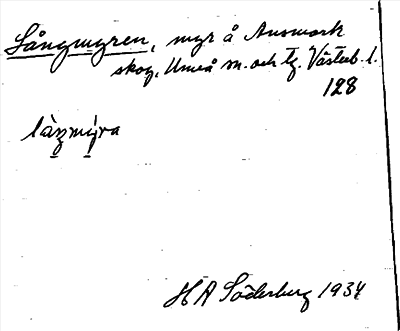 Långmyren, myr å Ansmark
skog, Umeå sn. och tg. Västerb. l.
128
làŋmy̌ra
H A Söderberg 1934